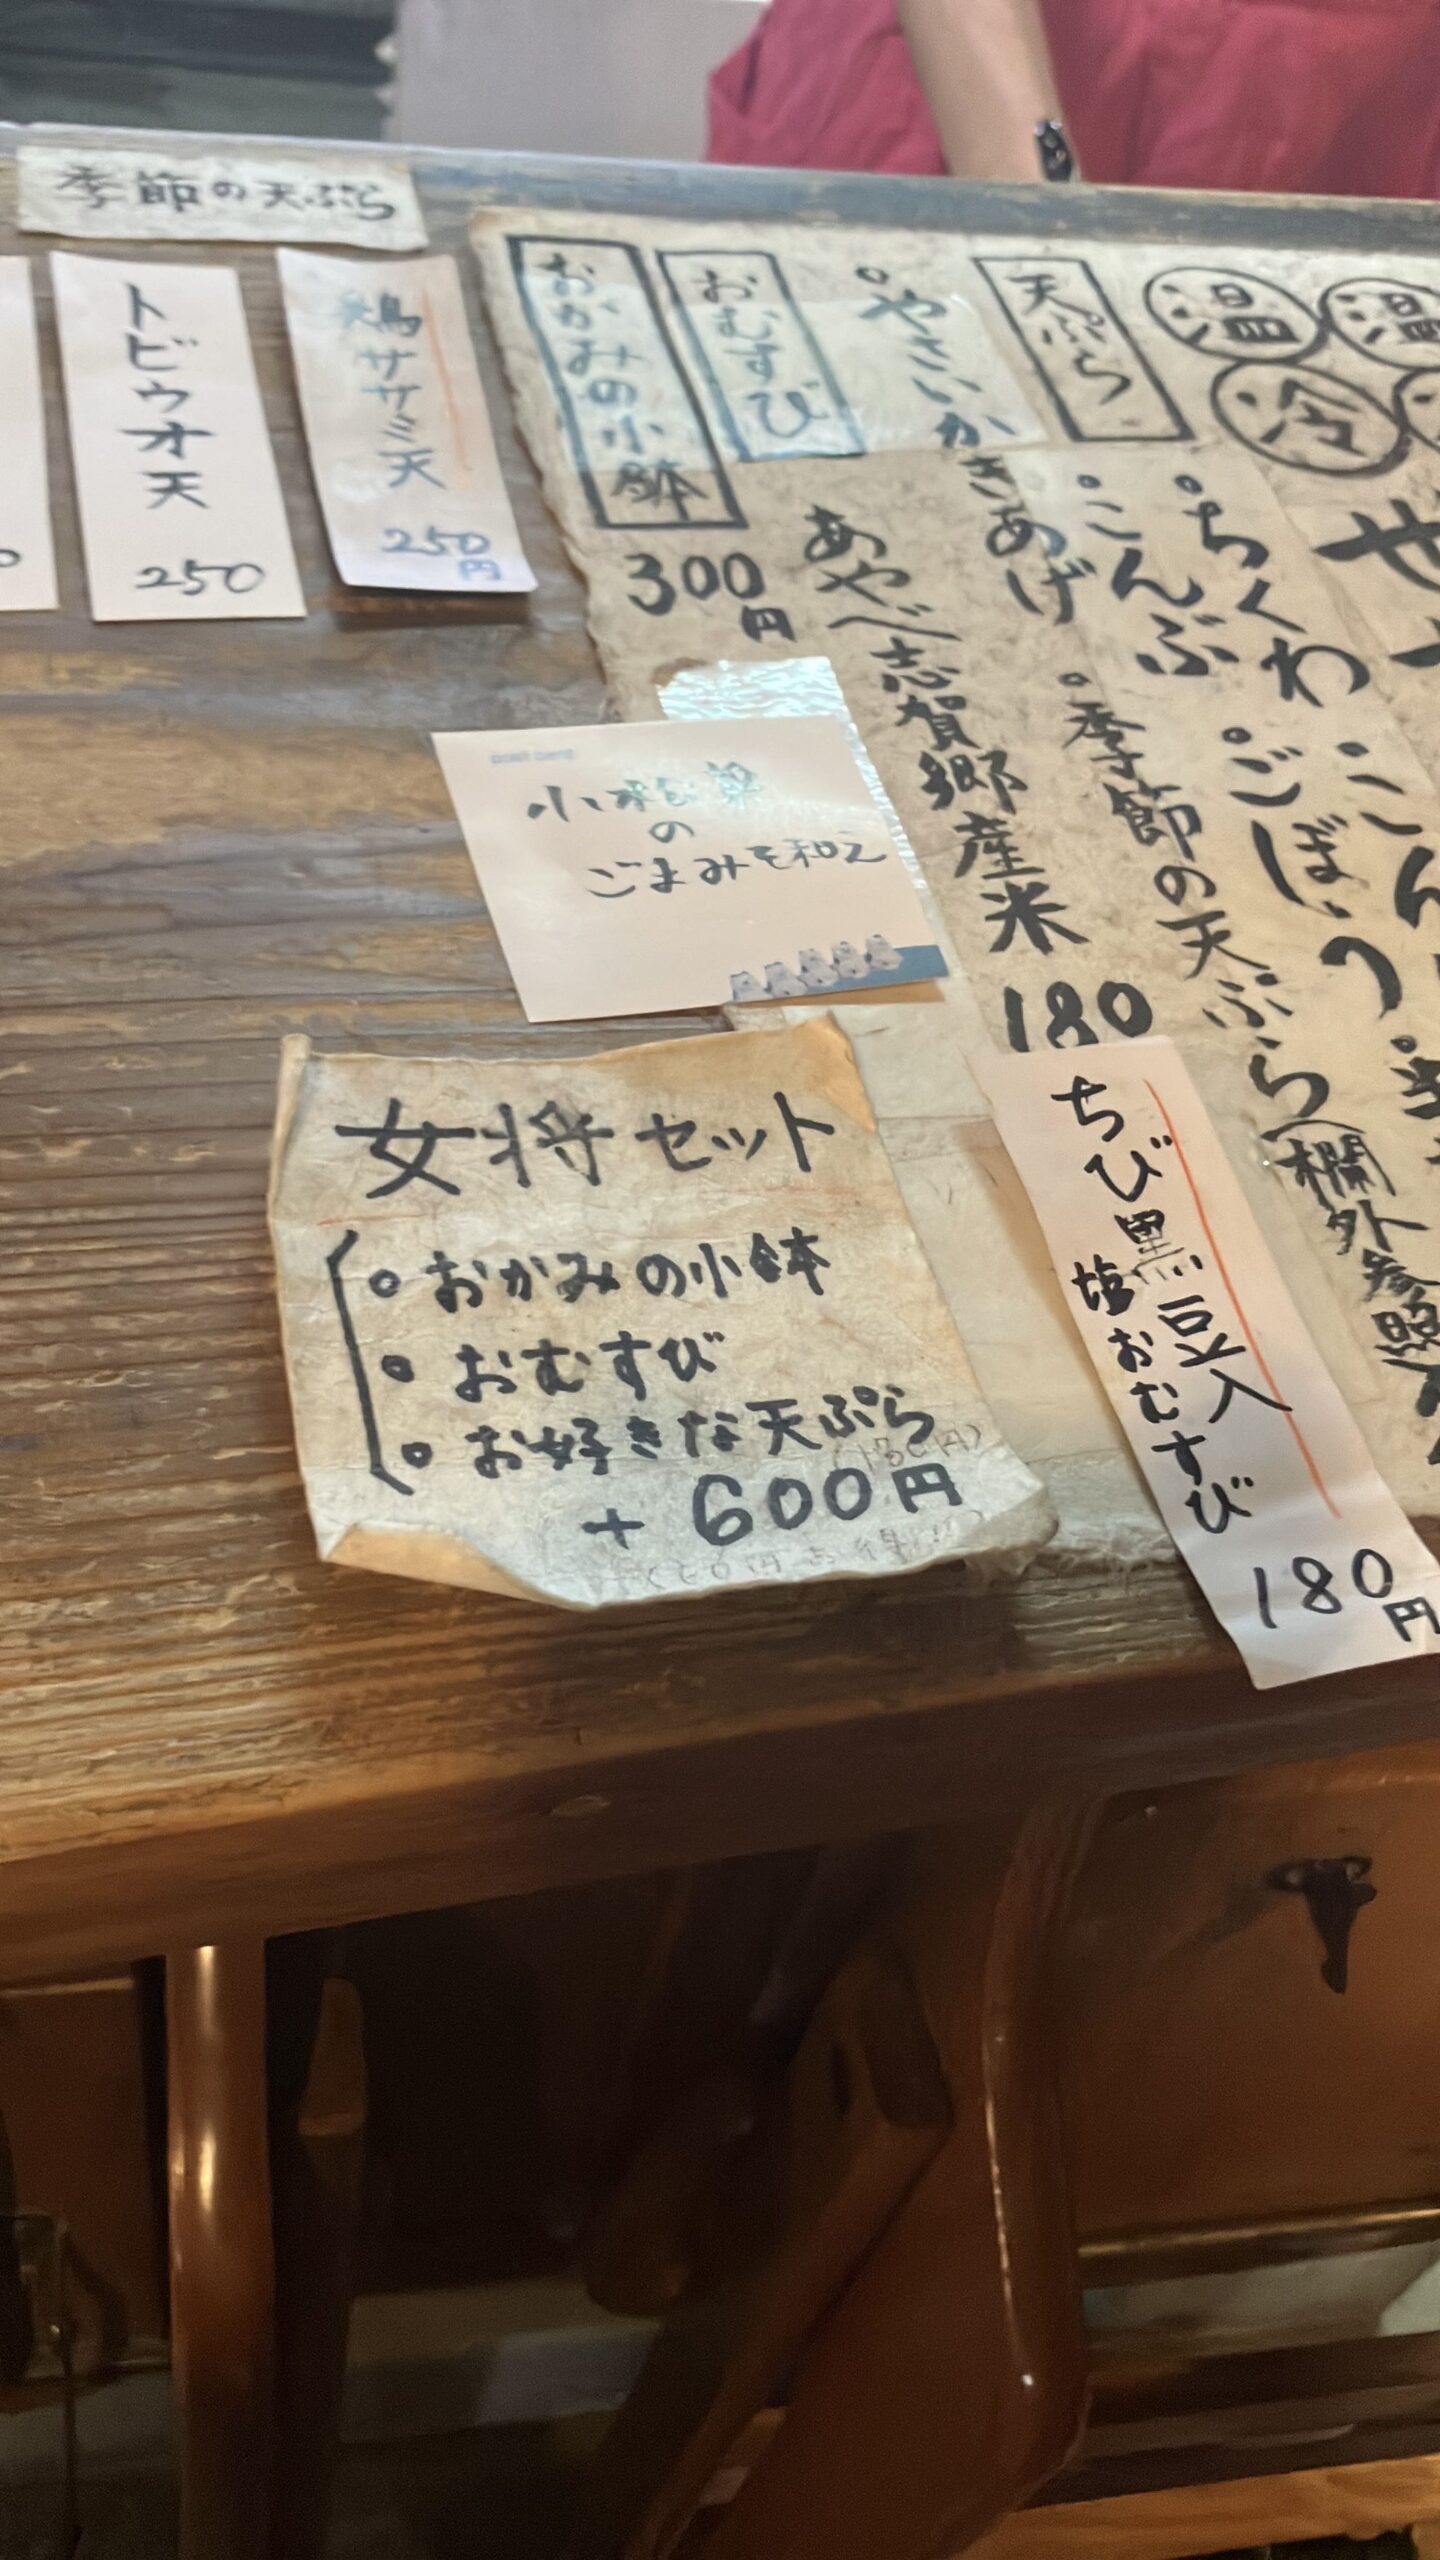 季節の天ぷら
トビウオ天
250
鶏ササミ天
250円
温
冷
天ぷら
ちくわ
こんぶ
ごぼう
季節の天ぷら(欄外参照)
やさいかきあげ
おむすび
あやべ志賀郷産米
180
ちび黒豆入
塩おむすび
180円
おかみの小鉢
300円
小松菜
の
ごまみそ和え
女将セット
おかみの小鉢
おむすび
お好きな天ぷら
+600円